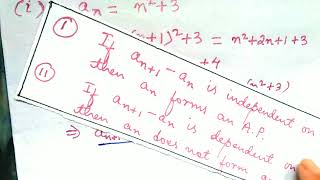 (i) aₙ = n²+3
(n+1)²+3 = n²+2n+1+3
+4
(n²+3)
(I) If aₙ₊₁ - aₙ is independent on
then an forms an A.P.
(II) If aₙ₊₁ - aₙ is dependent on
then an does not form a
⇒